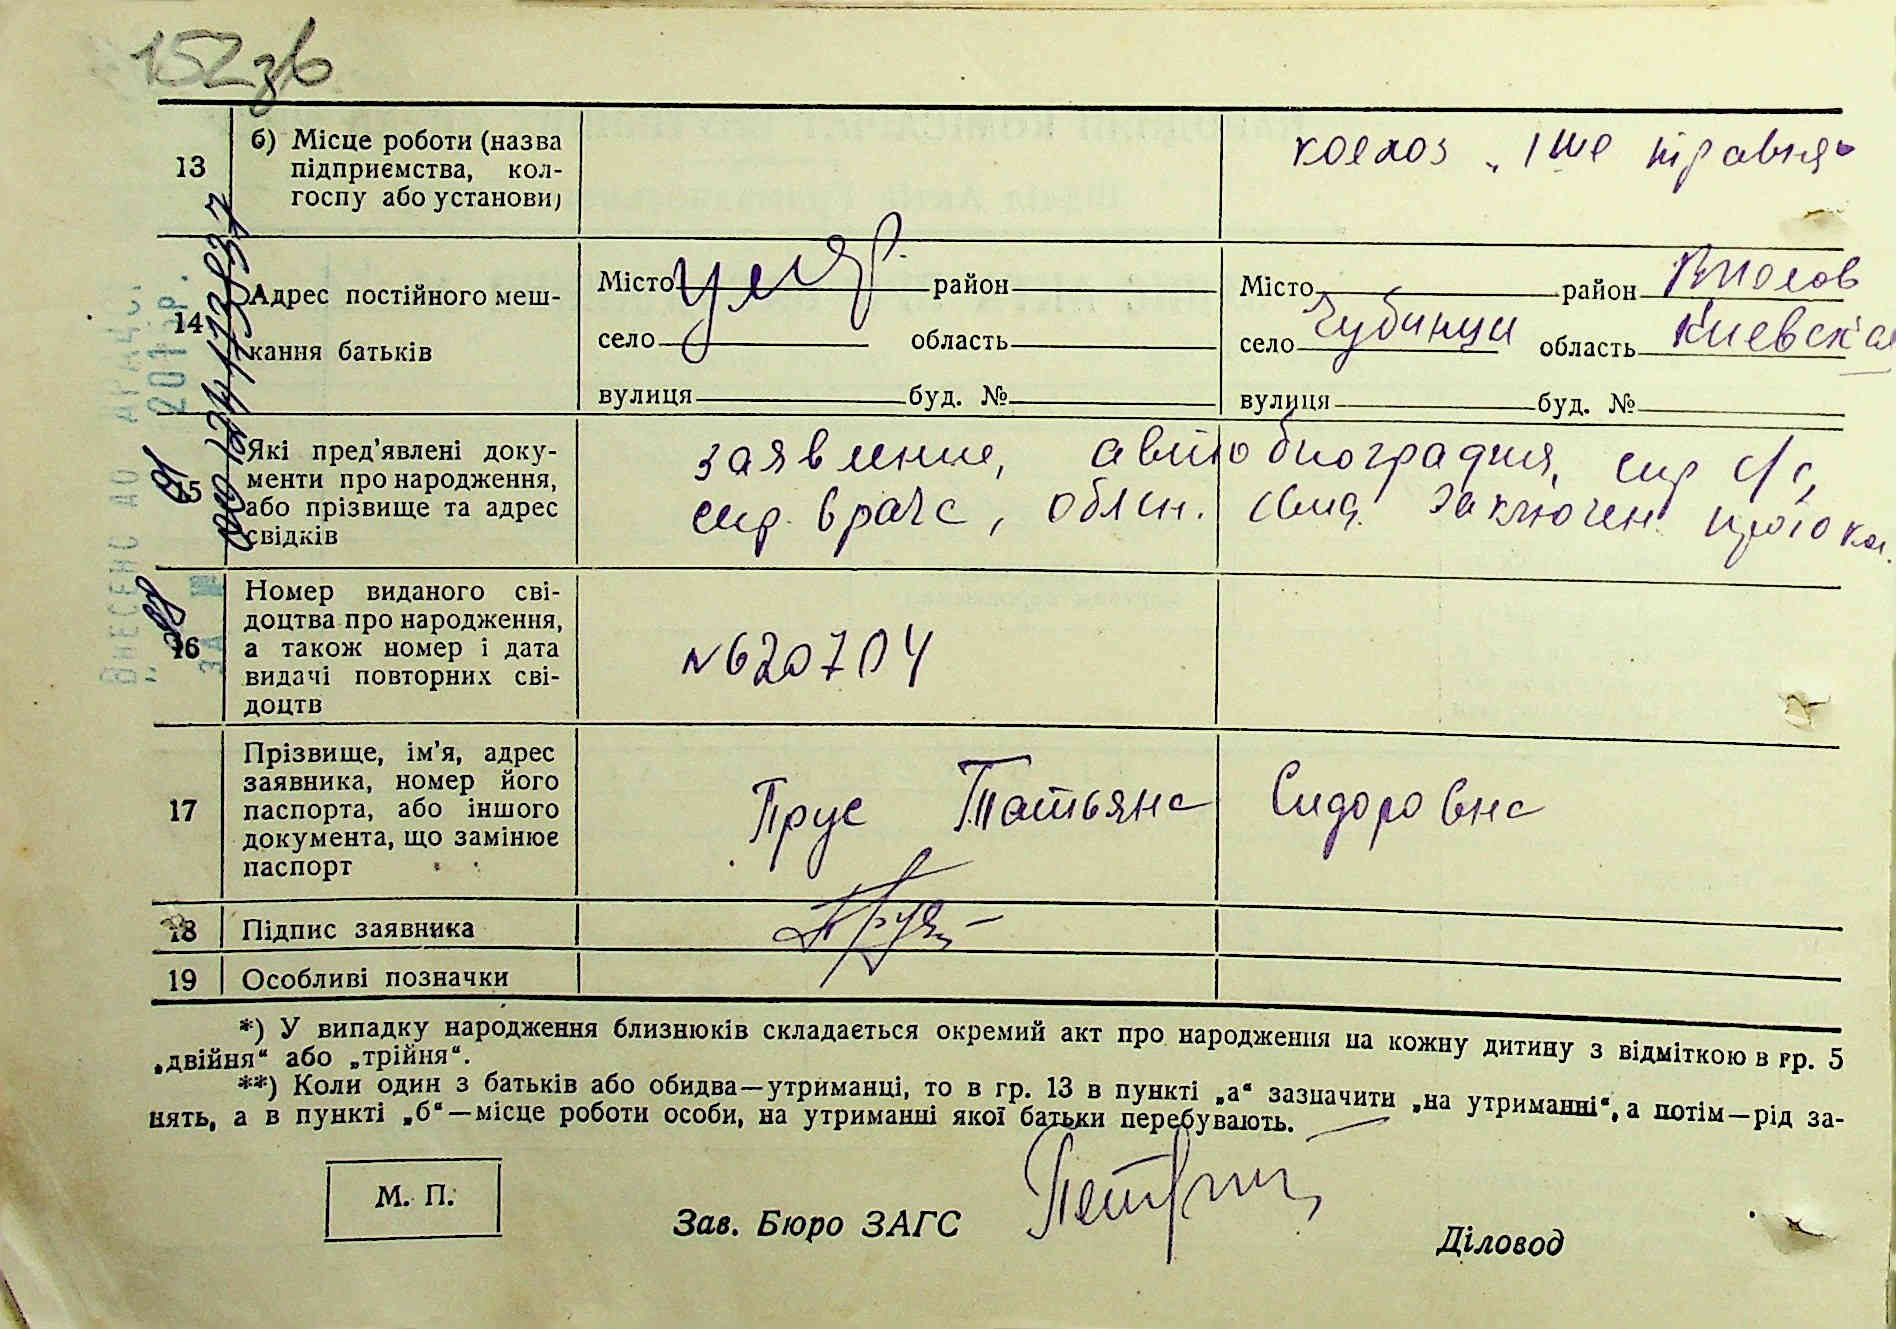 152 зв
13
б) Місце роботи (назва
підприємства, кол-
госпу або установи)
колхоз „1 ше травня"
14
Адрес постійного меш-
кання батьків
Місто умер район
село область
вулиця буд. №
Місто район Винолов
село Чубинци область Киевская
вулиця буд. №
15
Які пред'явлені доку-
менти про народження,
або прізвище та адрес
свідків
заявление, автобиография, спр с/с,
спр. врача, обясн. свид. Заключен. протокол
16
Номер виданого сві-
доцтва про народження,
а також номер і дата
видачі повторних сві-
доцтв
№620704
17
Прізвище, ім'я, адрес
заявника, номер його
паспорта, або іншого
документа, що замінює
паспорт
Прус Татьяна Сидоровна
18
Підпис заявника
Прус
19
Особливі позначки
*) У випадку народження близнюків складається окремий акт про народження на кожну дитину з відміткою в гр. 5
„двійня“ або „трійня“.
**) Коли один з батьків або обидва—утриманці, то в гр. 13 в пункті „а“ зазначити „на утриманні“, а потім—рід за-
нять, а в пункті „б“—місце роботи особи, на утриманні якої батьки перебувають.
М. П.
Зав. Бюро ЗАГС
Діловод
ВНЕСЕНО ДО
201 р.
ЗА №